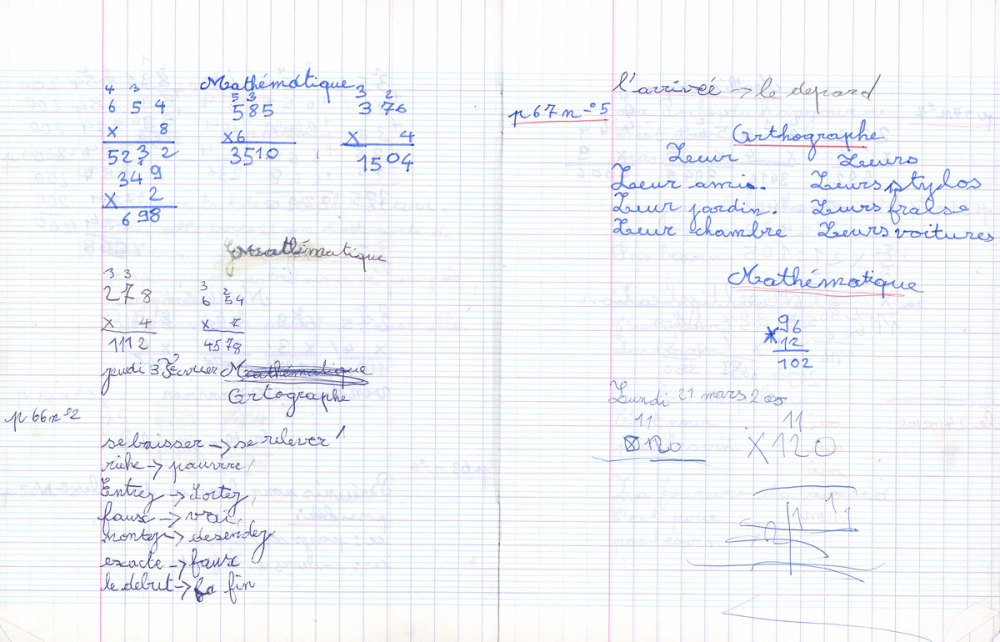 Mathématique
4 3
6 5 4
x 8
52 3 2
5 3
585
x6
3510
3 2
3 76
x 4
1504
34 9
x 2
6 98
Mathématique
3 3
278
x 4
1112
3 2
6 54
x 7
4578
jeudi 3 Février Mathématique
Ortographe
p 66 n°2
se baisser → se relever
riche → pauvre
Entrez → Sortez
faux → vrai
montez → desendez
exacte → faux
le debut → la fin
l'arriveé → le depard
p 67 n°5
Orthographe
Leur Leurs
Leur ami. Leurs stylos
Leur jardin. Leurs fraise
Leur chambre Leurs voitures
Mathématique
96
x 12
102
Lundi 21 mars 2005
11 11
x120 X120